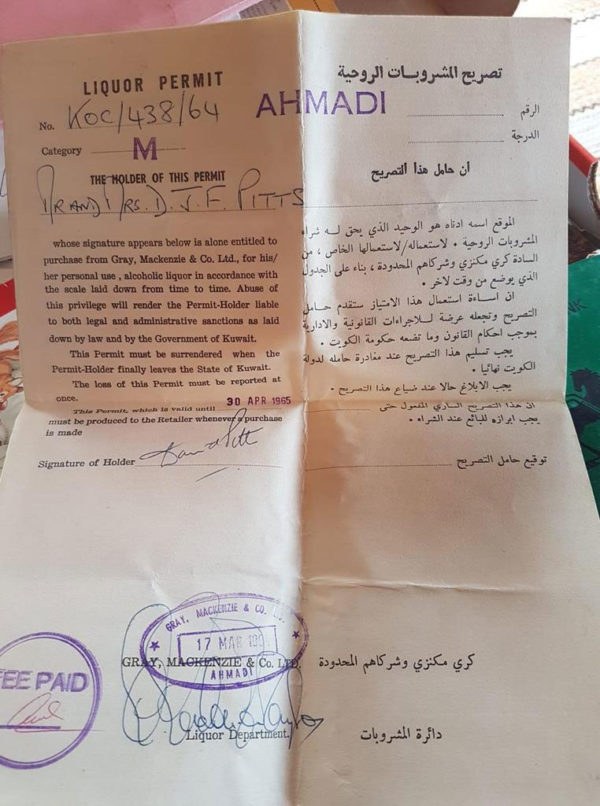 LIQUOR PERMIT
No. KOC/438/64
Category M
THE HOLDER OF THIS PERMIT
D. J. F. PITTS
whose signature appears below is alone entitled to
purchase from Gray, Mackenzie & Co. Ltd., for his/
her personal use , alcoholic liquor in accordance with
the scale laid down from time to time. Abuse of
this privilege will render the Permit-Holder liable
to both legal and administrative sanctions as laid
down by law and by the Government of Kuwait.
This Permit must be surrendered when the
Permit-Holder finally leaves the State of Kuwait.
The loss of this Permit must be reported at
once.
This Permit, which is valid until 30 APR 1965
must be produced to the Retailer whenever a purchase
is made
Signature of Holder
تصريح المشروبات الروحية
AHMADI
الرقم
الدرجة
أن حامل هذا التصريح
الموقع اسمه ادناه هو الوحيد الذي يحق لـه شراء
المشروبات الروحية • لاستعماله/لاستعمالها الخاص ، من
السادة كري مكنزي وشركاهم المحدودة ، بناء على الجدول
الذي يوضع من وقت لاخر •
ان اساءة استعمال هذا الامتياز ستقدم حامل
التصريح وتجعله عرضة للاجراءات القانونية والادارية
بموجب احكام القانون وما تضعه حكومة الكويت •
يجب تسليم هذا التصريح عند مغادرة حامله لدولة
الكويت نهائيا •
يجب الابلاغ حالا عند ضياع هذا التصريح •
ان هذا التصريح الساري المفعول حتى
يجب ابرازه للبائع عند الشراء •
توقيع حامل التصريح
GRAY, MACKENZIE & CO.
17 MAR
AHMADI
FEE PAID
GRAY, MACKENZIE & Co. LTD.
كري مكنزي وشركاهم المحدودة
Liquor Department.
دائرة المشروبات